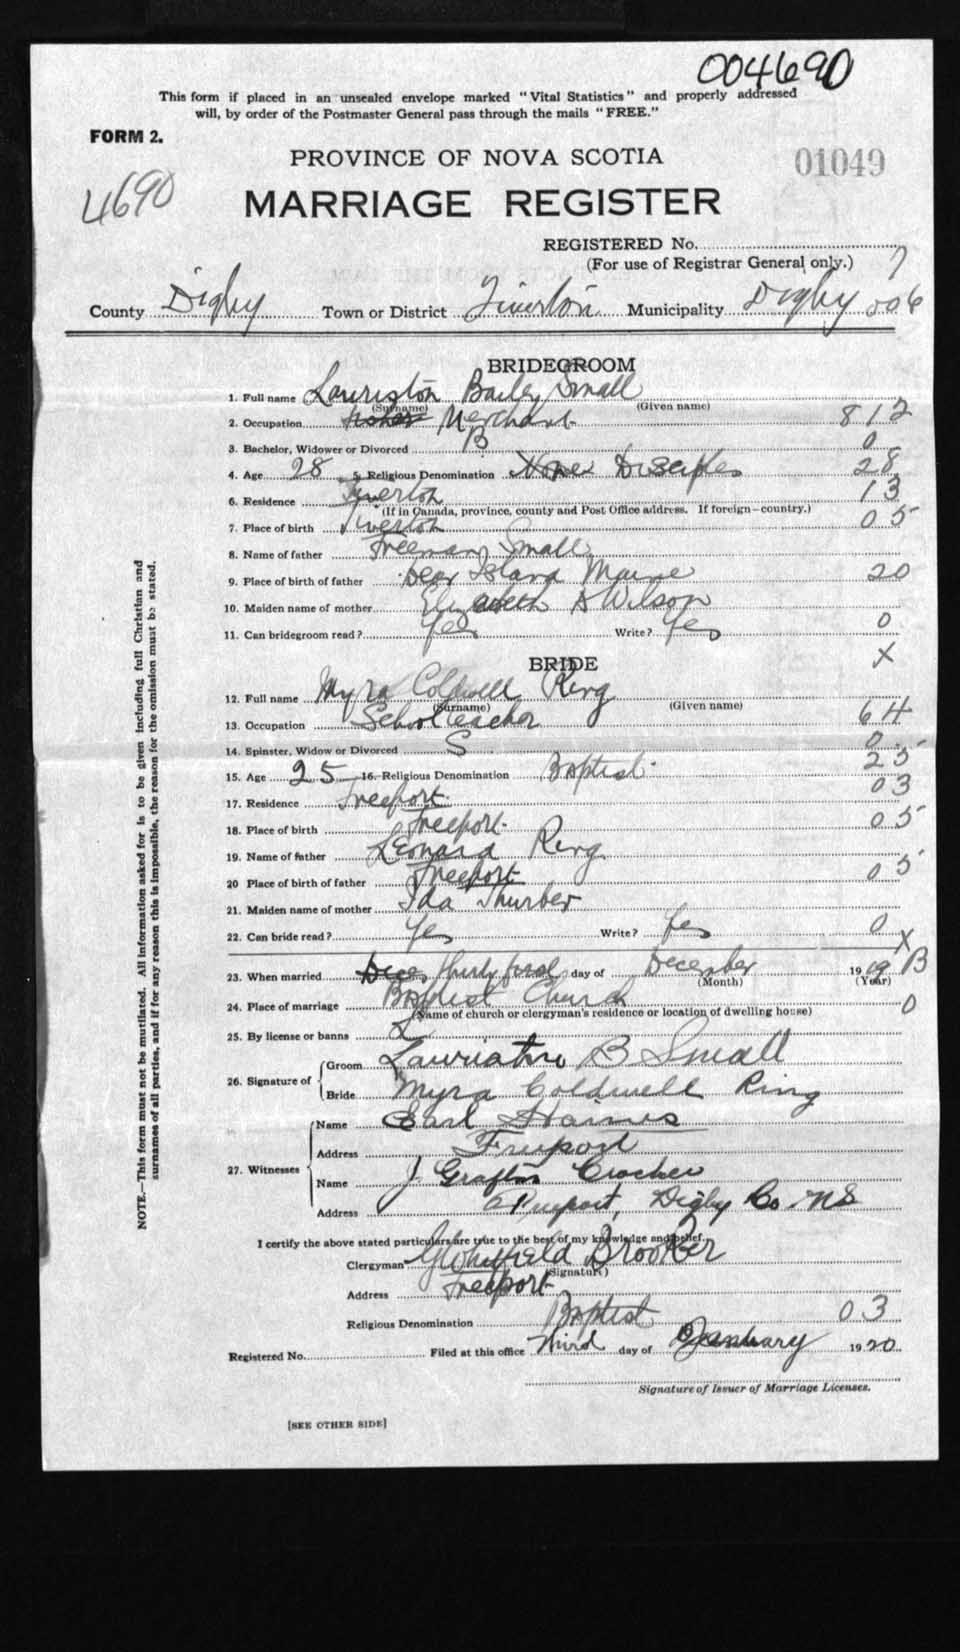 004690
This form if placed in an unsealed envelope marked "Vital Statistics" and properly addressed
will, by order of the Postmaster General pass through the mails "FREE."
FORM 2.
PROVINCE OF NOVA SCOTIA
01049
4690
MARRIAGE REGISTER
REGISTERED No.
(For use of Registrar General only.) 7
County Digby Town or District Tiverton Municipality Digby 006
BRIDEGROOM
1. Full name Lauriston Bailey Small
(Surname) (Given name)
2. Occupation Merchant 812
3. Bachelor, Widower or Divorced B 0
4. Age 28 5. Religious Denomination None Disciples 28
6. Residence Tiverton 13
(If in Canada, province, county and Post Office address. If foreign—country.)
7. Place of birth Tiverton 05
8. Name of father Freeman Small
9. Place of birth of father Dear Island Maine 20
10. Maiden name of mother Elizabeth A Wilson
11. Can bridegroom read? Yes Write? Yes 0
X
BRIDE
12. Full name Myra Coldwell Ring
(Surname) (Given name)
13. Occupation School teacher 64
14. Spinster, Widow or Divorced S 0
15. Age 25 16. Religious Denomination Baptist 25
17. Residence Freeport 03
18. Place of birth Freeport 05
19. Name of father Leonard Ring
20 Place of birth of father Freeport 05
21. Maiden name of mother Ida Thurber
22. Can bride read? Yes Write? Yes 0
X
23. When married Dec thirty first day of December 1919 B
(Month) (Year)
24. Place of marriage Baptist Church 0
(Name of church or clergyman's residence or location of dwelling house)
25. By license or banns L
26. Signature of Groom Lauriston B Small
Bride Myra Coldwell Ring
27. Witnesses Name Earl Haines
Address Freeport
Name J Grafton Crocker
Address Freeport, Digby Co. NS
I certify the above stated particulars are true to the best of my knowledge and belief.
Clergyman G Whitfield Brooker
(Signature)
Address Freeport
Religious Denomination Baptist 03
Registered No. Filed at this office Third day of January 1920
Signature of Issuer of Marriage Licenses.
[SEE OTHER SIDE]
NOTE.—This form must not be mutilated. All information asked for is to be given including full Christian and
surnames of all parties, and if for any reason this is impossible, the reason for the omission must be stated.